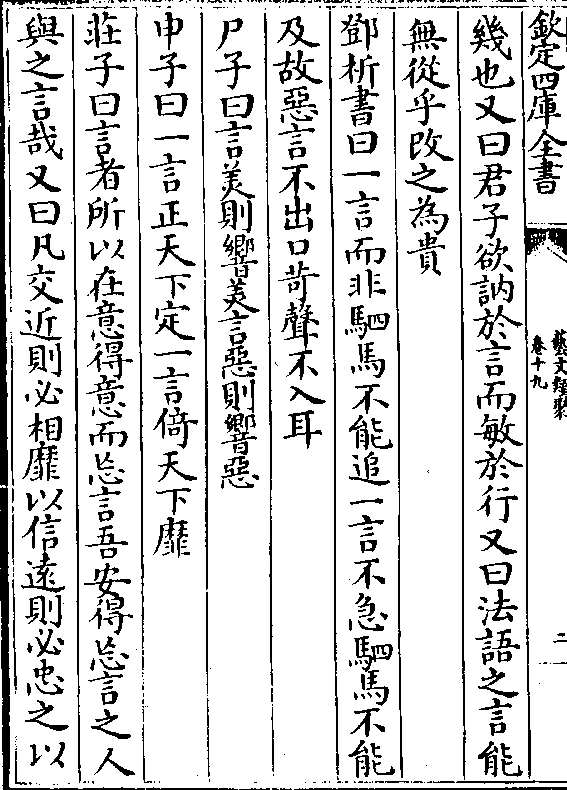 欽定四庫全書
藝文類聚
卷十九
二
幾也又曰君子欲訥於言而敏於行又曰法語之言能
無從乎改之為貴
鄧析書曰一言而非駟馬不能追一言不急駟馬不能
及故惡言不出口苛聲不入耳
尸子曰言美則響美言惡則響惡
申子曰一言正天下定一言倚天下靡
莊子曰言者所以在意得意而忘言吾安得忘言之人
與之言哉又曰凡交近則必相靡以信遠則必忠之以